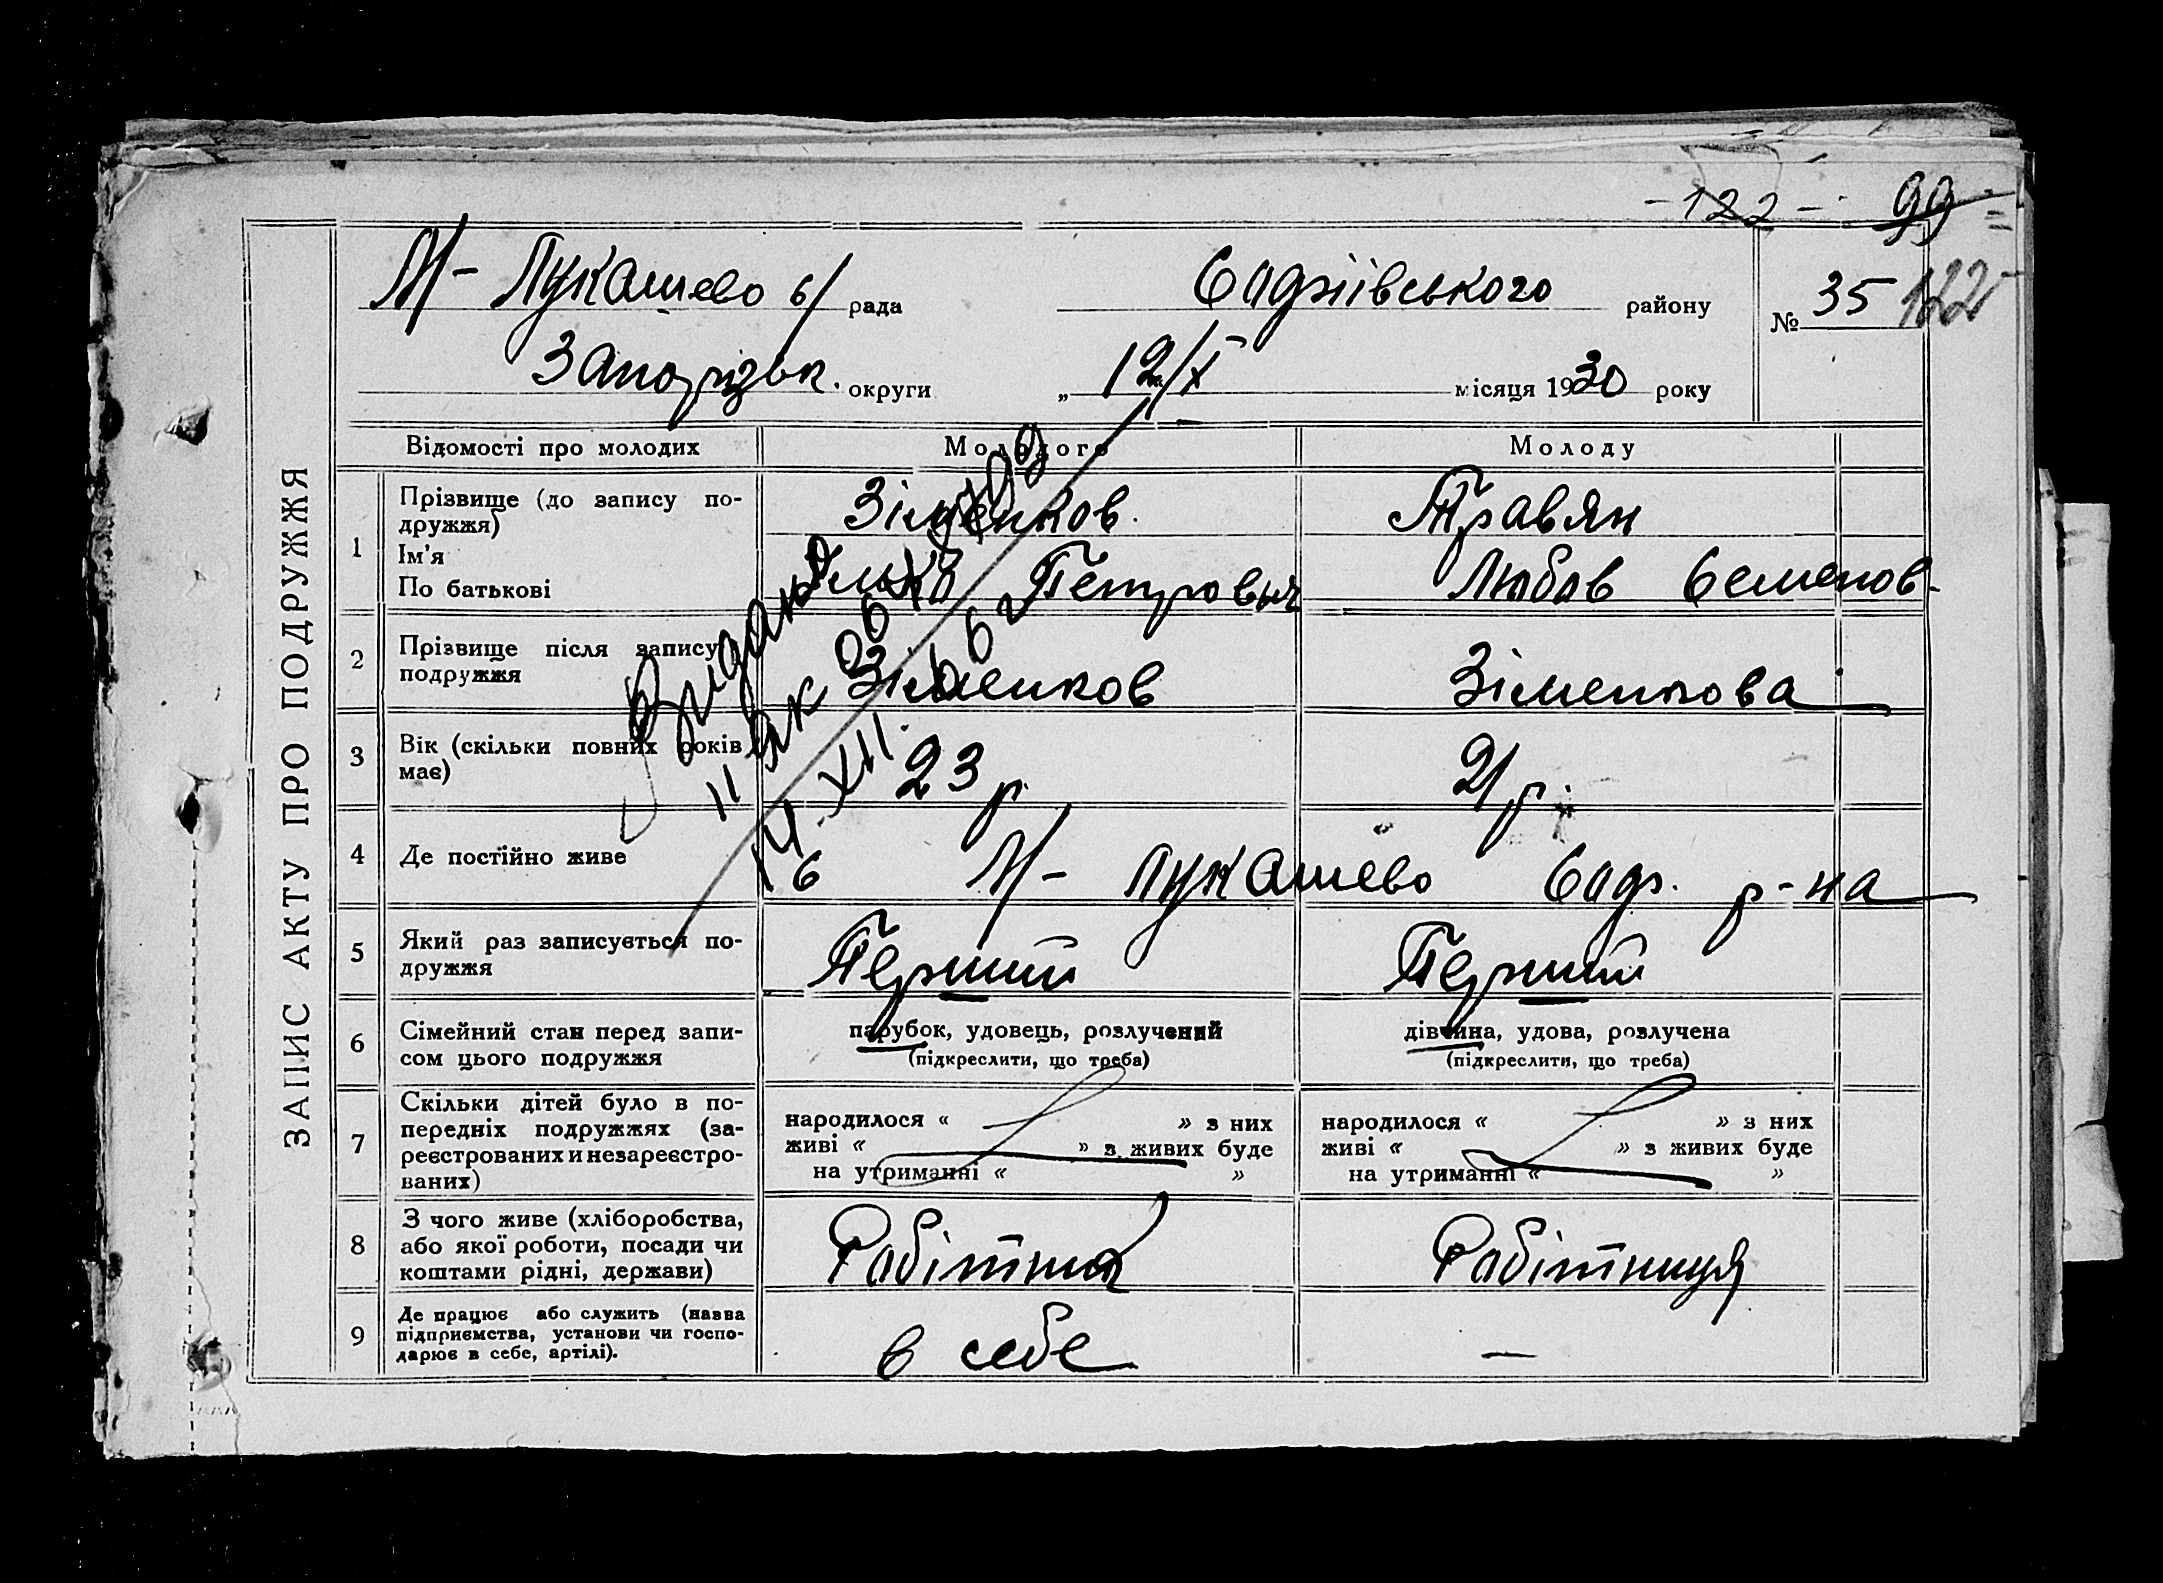 - 122 - 99 =
М- Лукашево с/рада Софіївського району № 35 122
Запорізьк. округи „ 12/X місяця 1930 року
ЗАПИС АКТУ ПРО ПОДРУЖЖЯ
Відомості про молодих Молодого Молоду
1 Прізвище (до запису подружжя) Зіменков. Травян
Ім'я
По батькові Петрович Любов Семенов-
2 Прізвище після запису подружжя Зіменков Зіменкова
3 Вік (скільки повних років має) 23 р. 21 р.
4 Де постійно живе в М- Лукашево Соф. р-на
5 Який раз записується подружжя Перший Перший
6 Сімейний стан перед записом цього подружжя парубок, удовець, розлучений дівчина, удова, розлучена
(підкреслити, що треба) (підкреслити, що треба)
7 Скільки дітей було в попередніх подружжях (зареєстрованих и незареєстрованих) народилося « » з них народилося « » з них
живі « » з живих буде живі « » з живих буде
на утриманні « » на утриманні « »
8 З чого живе (хліборобства, або якої роботи, посади чи коштами рідні, держави) Робітник Робітниця
9 Де працює або служить (назва підприємства, установи чи господарює в себе, артілі). в себе —
14.XII.